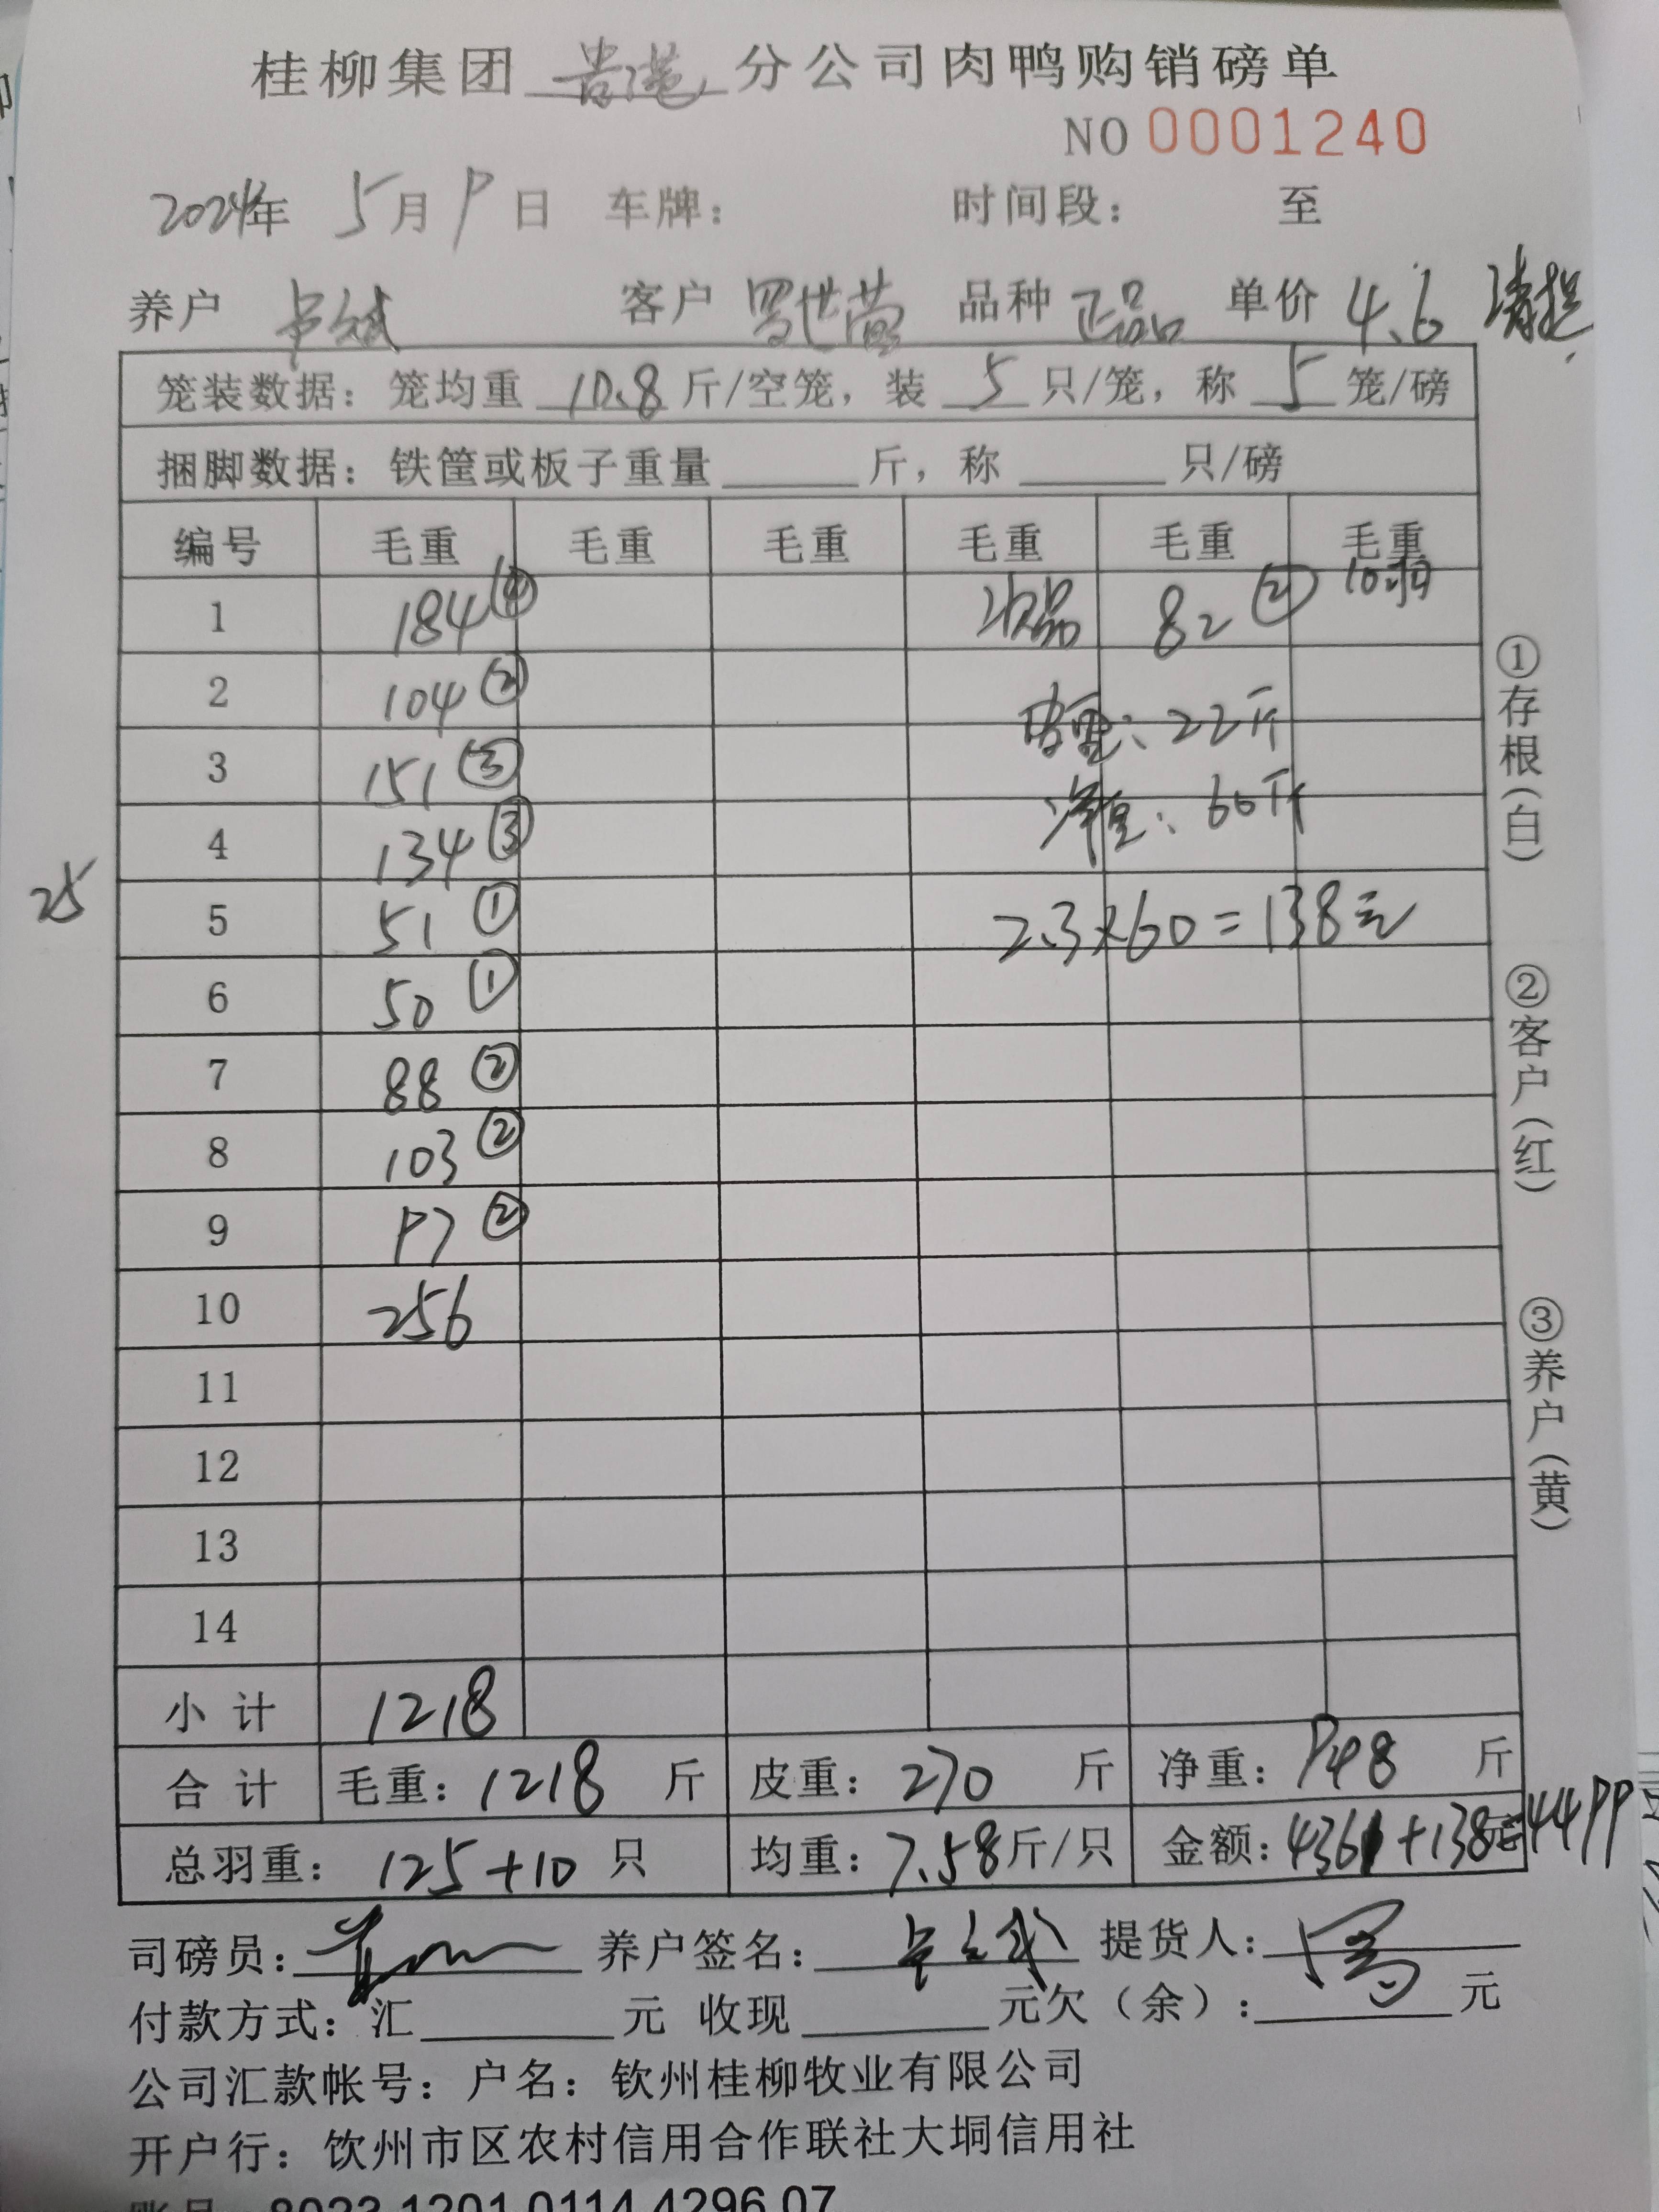 桂柳集团 贵港 分公司肉鸭购销磅单
NO 0001240
2024年 5月 9日 车牌: 时间段: 至
养户 卢斌 客户 罗世营 品种 正品 单价 4.6 请提
笼装数据: 笼均重 10.8 斤/空笼, 装 5 只/笼, 称 5 笼/磅
捆脚数据: 铁筐或板子重量 斤, 称 只/磅
编号 毛重 毛重 毛重 毛重 毛重 毛重
1 184 ④ 次品 82 ② 10只
2 104 ②
笼重: 22斤
3 151 ③
净重: 60斤
4 134 ③
25
5 51 ① 2.3×60=138元
6 50 ①
7 88 ②
8 103 ②
9 97 ②
10 256
11
12
13
14
小 计 1218
合 计 毛重: 1218 斤 皮重: 270 斤 净重: 948 斤
总羽重: 125+10 只 均重: 7.58斤/只 金额: 4361+138=4499
司磅员: 养户签名: 提货人:
付款方式: 汇 元 收现 元欠(余): 元
公司汇款帐号: 户名: 钦州桂柳牧业有限公司
开户行: 饮州市区农村信用合作联社大垌信用社
账号 8023 1201 0114 4296 07
①存根(白)
②客户(红)
③养户(黄)